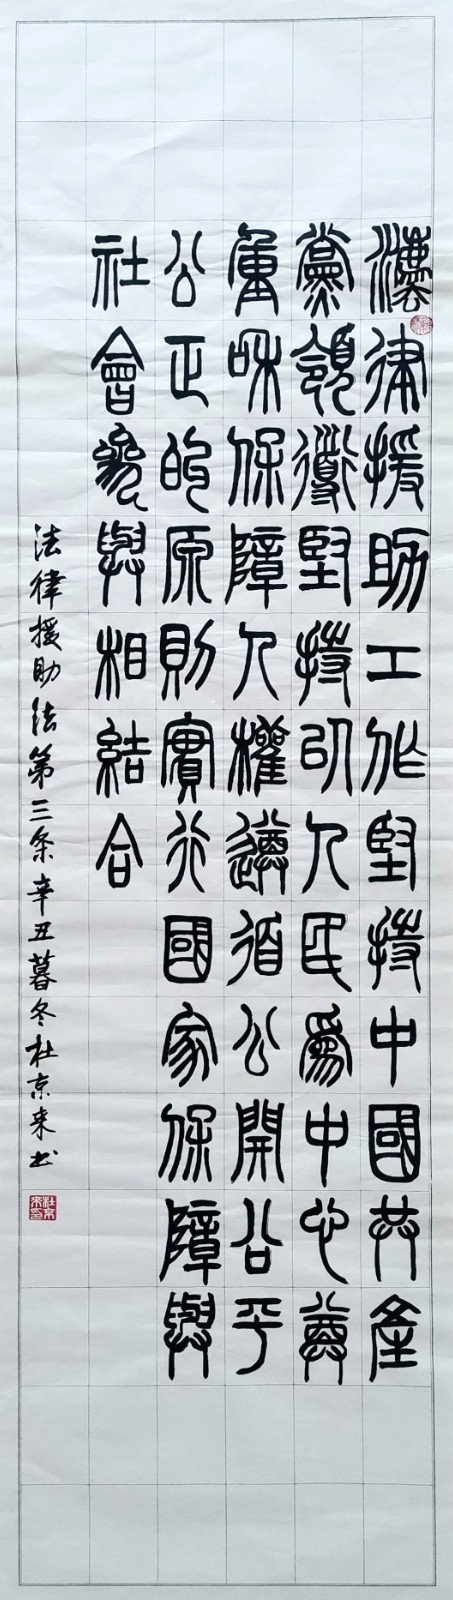 灋律援助工作堅持中國共產
黨領導堅持以人民為中心尊
重和保障人權遵循公開公平
公正的原則實行國家保障與
社會參與相結合
法律援助法第三条辛丑暮冬杜京来书
杜京来印